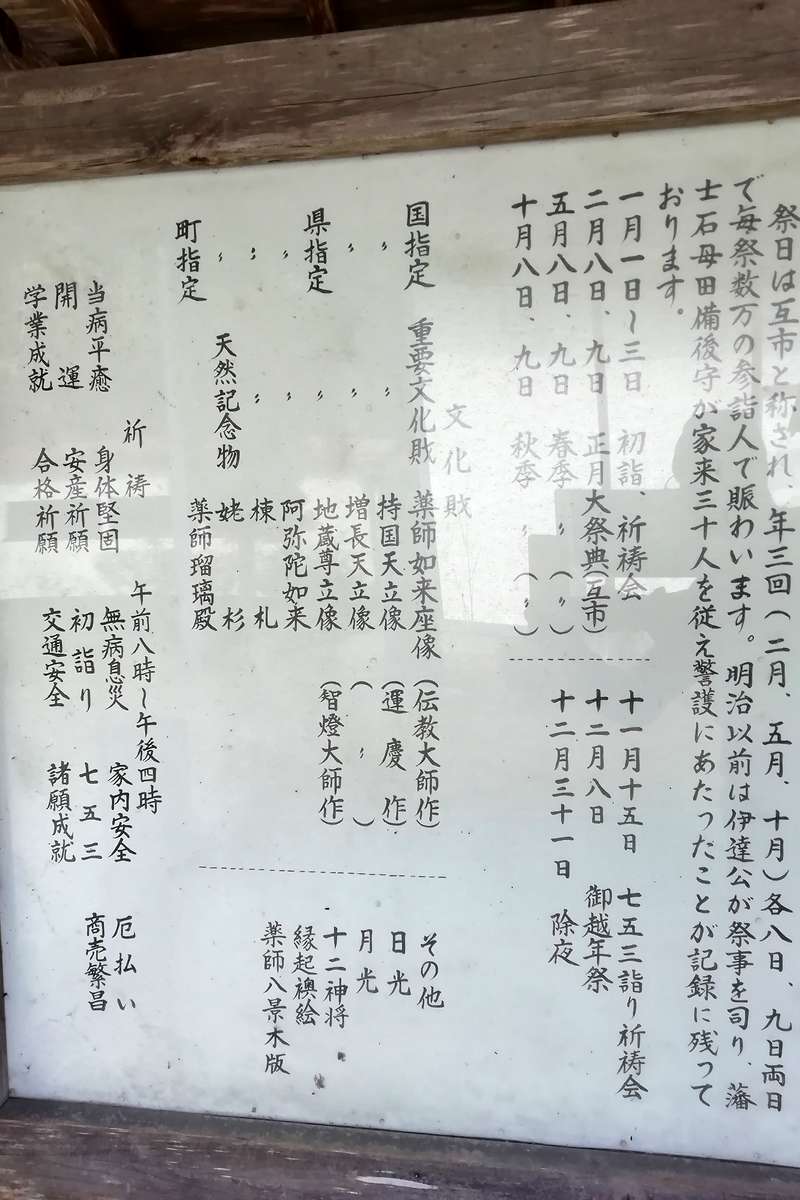 祭日は互市と称され、年三回(二月、五月、十月)各八日、九日両日
で毎祭数万の参詣人で賑わいます。明治以前は伊達公が祭事を司り、藩
士石母田備後守が家来三十人を従え警護にあたったことが記録に残って
おります。
一月一日〜三日 初詣、祈祷会
二月八日、九日 正月大祭典(互市)
五月八日、九日 春季〃(〃)
十月八日、九日 秋季〃(〃)
十一月十五日 七五三詣り祈祷会
十二月八日 御越年祭
十二月三十一日 除夜
文化財
国指定 重要文化財 薬師如来座像(伝教大師作)
〃 〃 持国天立像(運慶作)
〃 〃 増長天立像(〃)
県指定 〃 地蔵尊立像(智燈大師作)
〃 〃 阿弥陀如来
〃 〃 棟札
〃 天然記念物 姥杉
町指定 薬師瑠璃殿
その他
日光
月光
十二神将
縁起襖絵
薬師八景木版
祈祷 午前八時〜午後四時
当病平癒 身体堅固 無病息災 家内安全 厄払い
開運 安産祈願 初詣り 七五三 商売繁昌
学業成就 合格祈願 交通安全 諸願成就